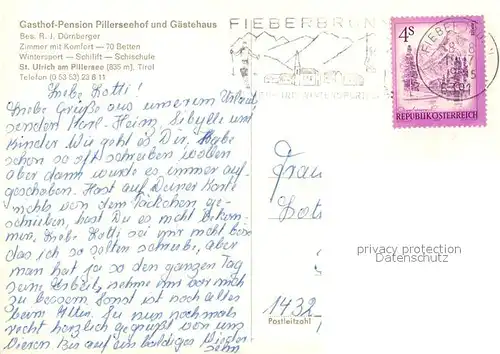 Gasthof-Pension Pillerseehof und Gästehaus
Bes. R. J. Dürnberger
Zimmer mit Komfort — 70 Betten
Wintersport — Schilift — Schischule
St. Ulrich am Pillersee (835 m), Tirol
Telefon (0 53 53) 22 8 11
FIEBERBRUNN
4S
REPUBLIK ÖSTERREICH
Liebe Lotti!
Liebe Grüße aus unserem Urlaub
senden Karl-Heinz, Sibylle und
Kinder Wie geht es Dir. Habe
schon so oft schreiben wollen
aber dann wurde es immer auf-
geschoben. Hast auf Deiner Karte
nichts von dem Päckchen ge-
schrieben, hast Du es nicht bekom-
men, Liebe Lotti sei mir nicht böse
das ich so selten schreibe, aber
man hat ja so den ganzen Tag
seine Arbeit, nehme mir vor mich
zu bessern. Sonst ist noch alles
beim Alten. So nun nochmals
recht herzlich gegrüßt von uns
Vieren. Bis auf ein baldiges Wieder-
sehn
Frau
Lot
1432
Postleitzahl
privacy protection
Datenschutz